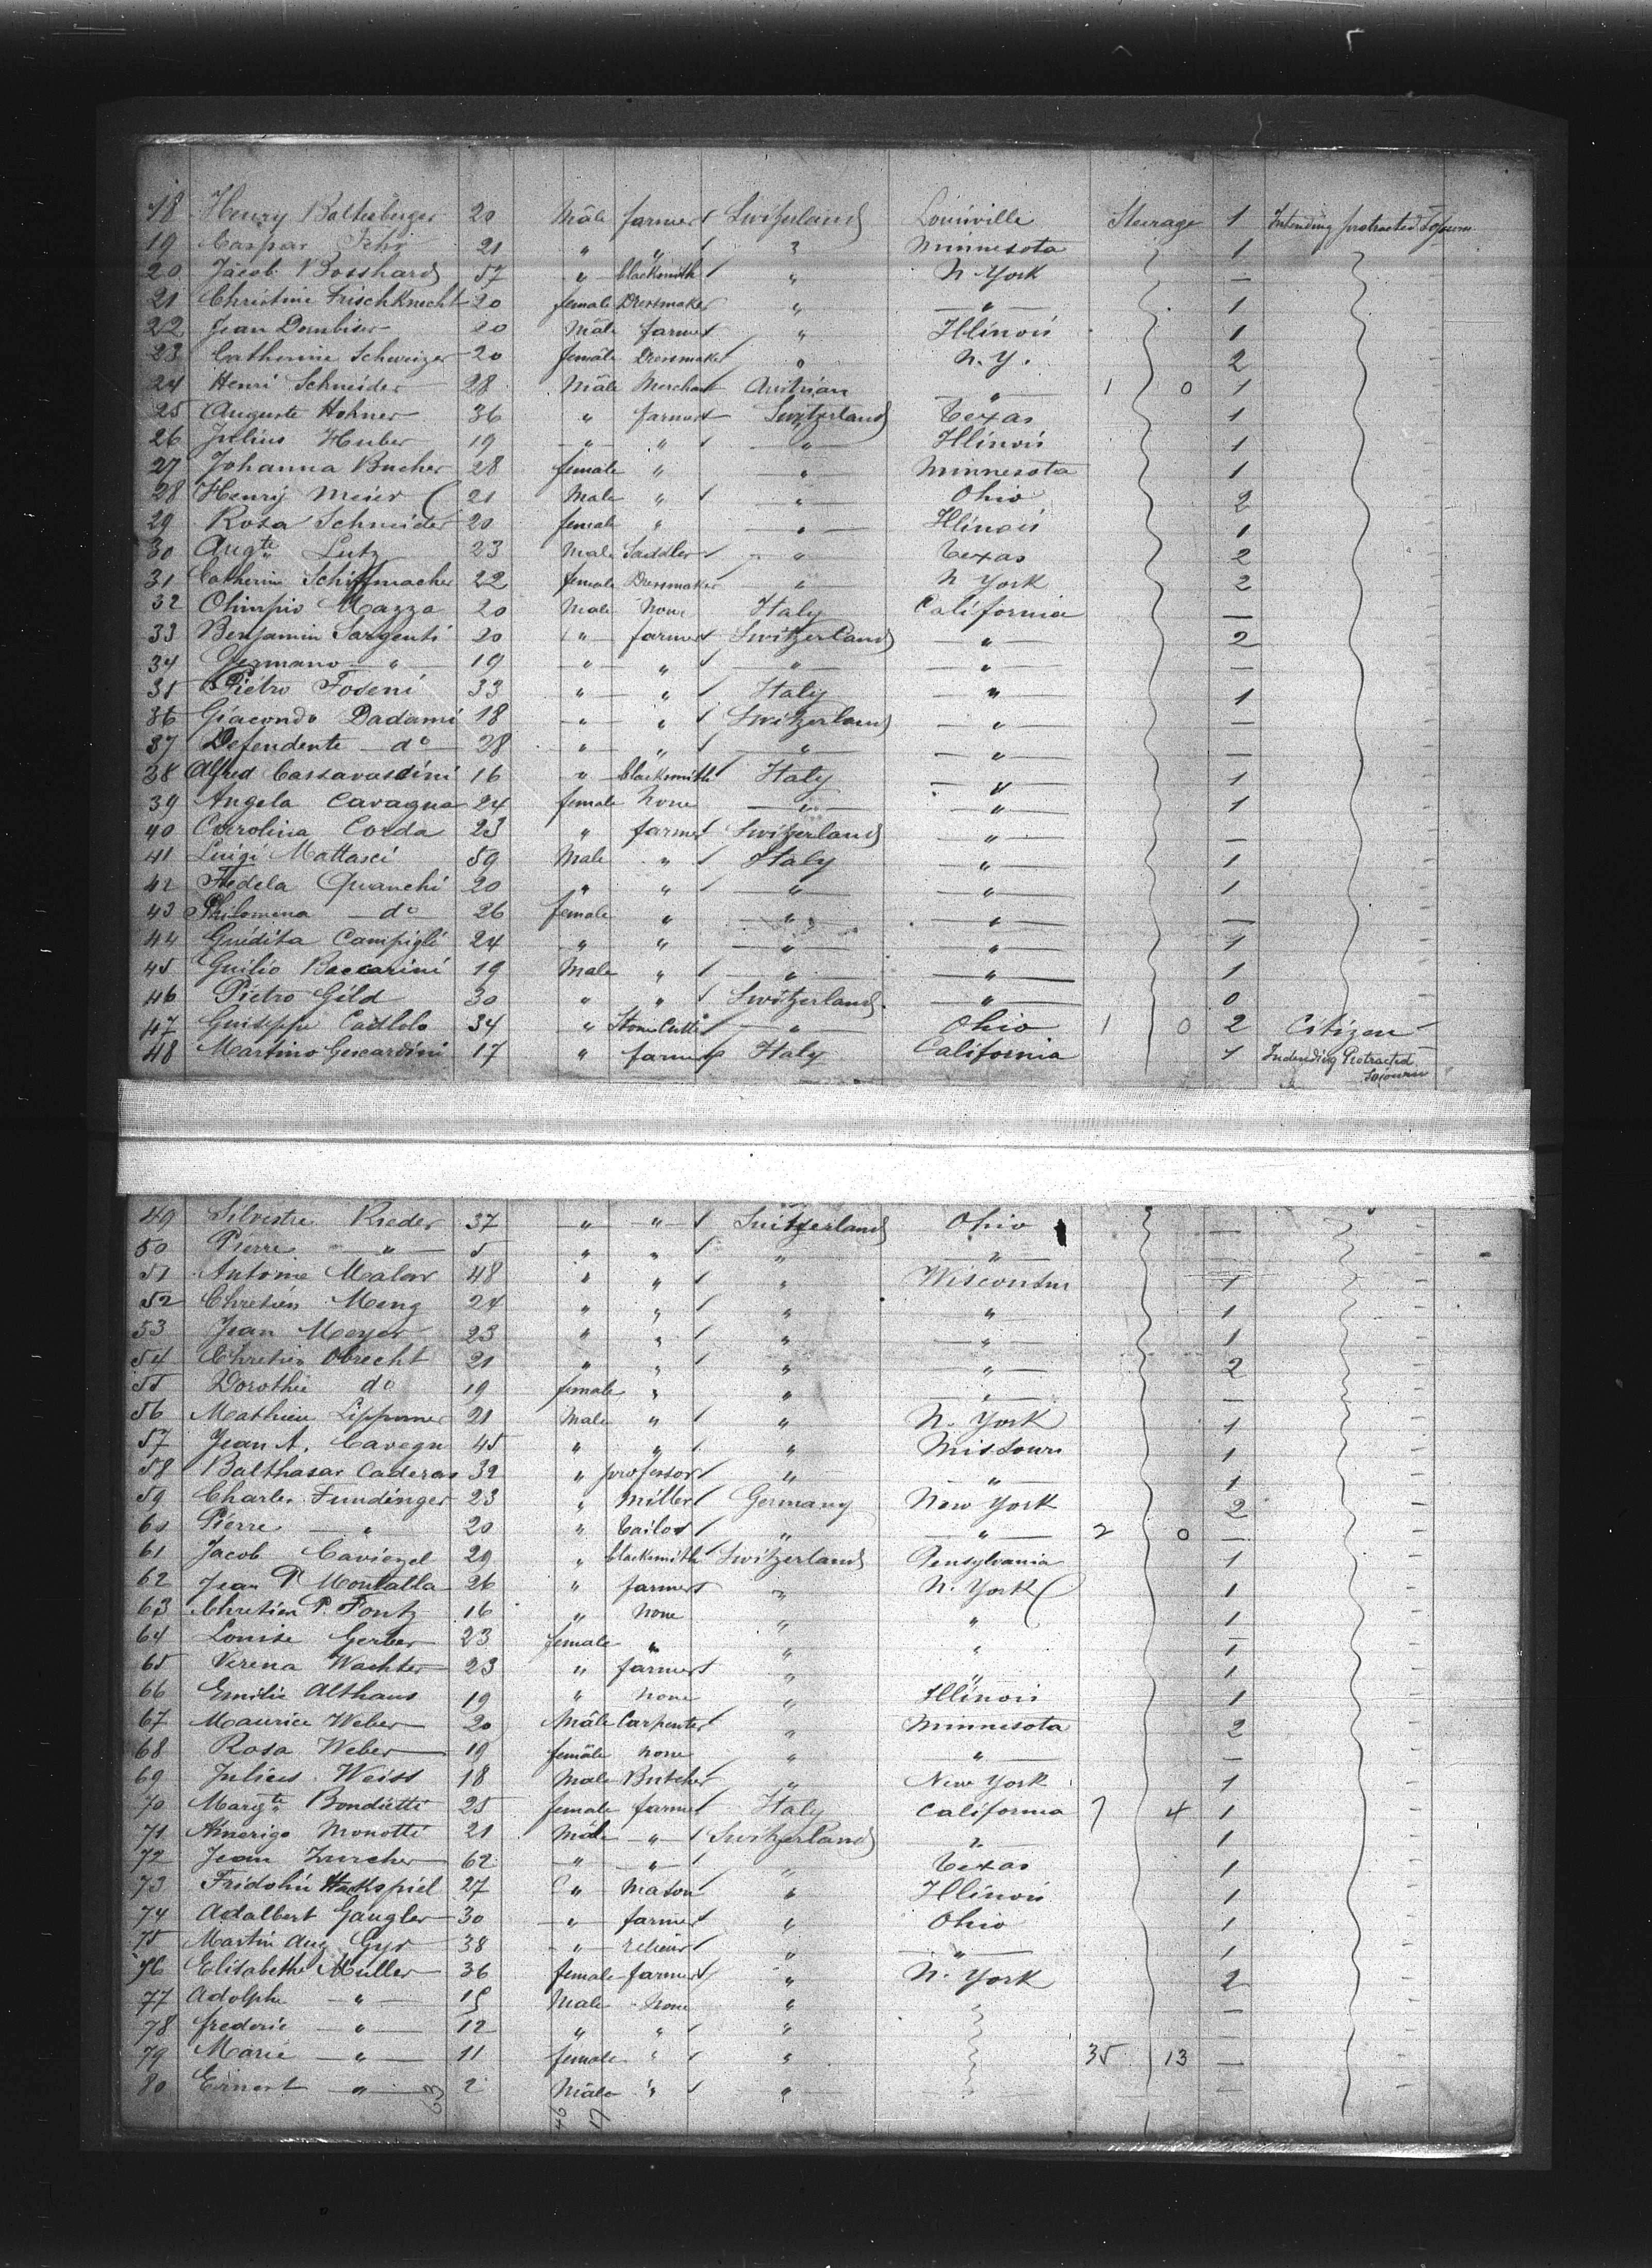 18 Henry Baltesberger 20 Mâle farmer Switzerland Louisville Steerage 1 Intending protracted Sojourn
19 Caspar Fehr 21 " " " Minnesota 1
20 Jacob Bosshard 57 " blacksmith " N York —
21 Christine Frischknecht 20 female Dressmaker " " 1
22 Jean Dombiser 20 Mâle farmer " Illinois 1
23 Catherine Schweizer 20 femâle Dressmaker " N. Y. 2
24 Henri Schneider 28 Mâle Merchant Austrian " 1 0 1
25 Auguste Hohner 36 " farmer Switzerland Texas 1
26 Julius Huber 19 " " " Illinois 1
27 Johanna Bucher 28 female " " Minnesota 1
28 Henry Meier 21 Male " " Ohio 2
29 Rosa Schneider 20 female " " Illinois 1
30 Augte Lutz 23 Male Saddler " Texas 2
31 Catherine Schiffmacher 22 female Dressmaker " N York 2
32 Olimpio Mazza 20 Male None Italy California —
33 Benjamin Sargenti 20 " farmer Switzerland " 2
34 Germano " 19 " " " " —
35 Piétro Foseni 33 " " Italy " 1
36 Giacondo Dadami 18 " " Switzerland " —
37 Defendente do 28 " " " " —
38 Alfred Cassavasdini 16 " blacksmith Italy " 1
39 Angela Cavagna 24 female None " " 1
40 Carolina Corda 23 " farmer Switzerland " —
41 Luigi Mattasci 59 Male " Italy " 1
42 Fiedela Quanchi 20 " " " " 1
43 Philomena do 26 female " " " —
44 Guidita Campigli 24 " " " " 1
45 Guilio Baccarini 19 Male " " " 1
46 Pietro Gild 30 " " Switzerland " 0
47 Guiseppe Cadlolo 34 " Stone Cutter " Ohio 1 0 2 Citizen
48 Martino Gescardini 17 " farmer Italy California 1 Indending Protracted Sojourn
49 Silvestre Rieder 37 " " Switzerland Ohio —
50 Pierre " 5 " " " " —
51 Antoine Malow 48 " " " Wisconsin 1
52 Chretien Meng 24 " " " " 1
53 Jean Meyer 23 " " " " 1
54 Chretien Obrecht 21 " " " " 2
55 Dorothée do 19 female " " " —
56 Mathieu Lippuner 21 Male " " N. York 1
57 Jean A. Cavegn 45 " " " Missouri 1
58 Balthasar Caderas 32 " professor " " 1
59 Charles Fundinger 23 " Miller Germany New York 2
60 Pierre " 20 " Tailor " " 2 0 —
61 Jacob Caviezel 29 " blacksmith Switzerland Pensylvania 1
62 Jean P Montalta 26 " farmer " N. York 1
63 Chretien P. Fontz 16 " None " " 1
64 Louise Gerber 23 female " " " 1
65 Verena Wachter 23 " farmer " " 1
66 Emilie Althaus 19 " none " Illinois 1
67 Maurice Weber 20 Mâle Carpenter " Minnesota 2
68 Rosa Weber 19 femâle none " " —
69 Julius Weiss 18 Male Butcher " New York 1
70 Margte Bondietti 25 female farmer Italy California 7 4 1
71 Amerigo Monotti 21 Mâle " Switzerland " 1
72 Jean Zurcher 62 " " " Texas 1
73 Fridolin Hackspiel 27 " Mason " Illinois 1
74 Adalbert Gaugler 30 " farmer " Ohio 1
75 Martin Aug Gyr 38 " relieur " " 1
76 Elisabethe Muller 36 female farmer " N. York 2
77 Adolphe " 15 Male none " —
78 frederic " 12 " " " —
79 Marie " 11 female " " 35 13 —
80 Ernest " 2 Mâle " "
63 46 17